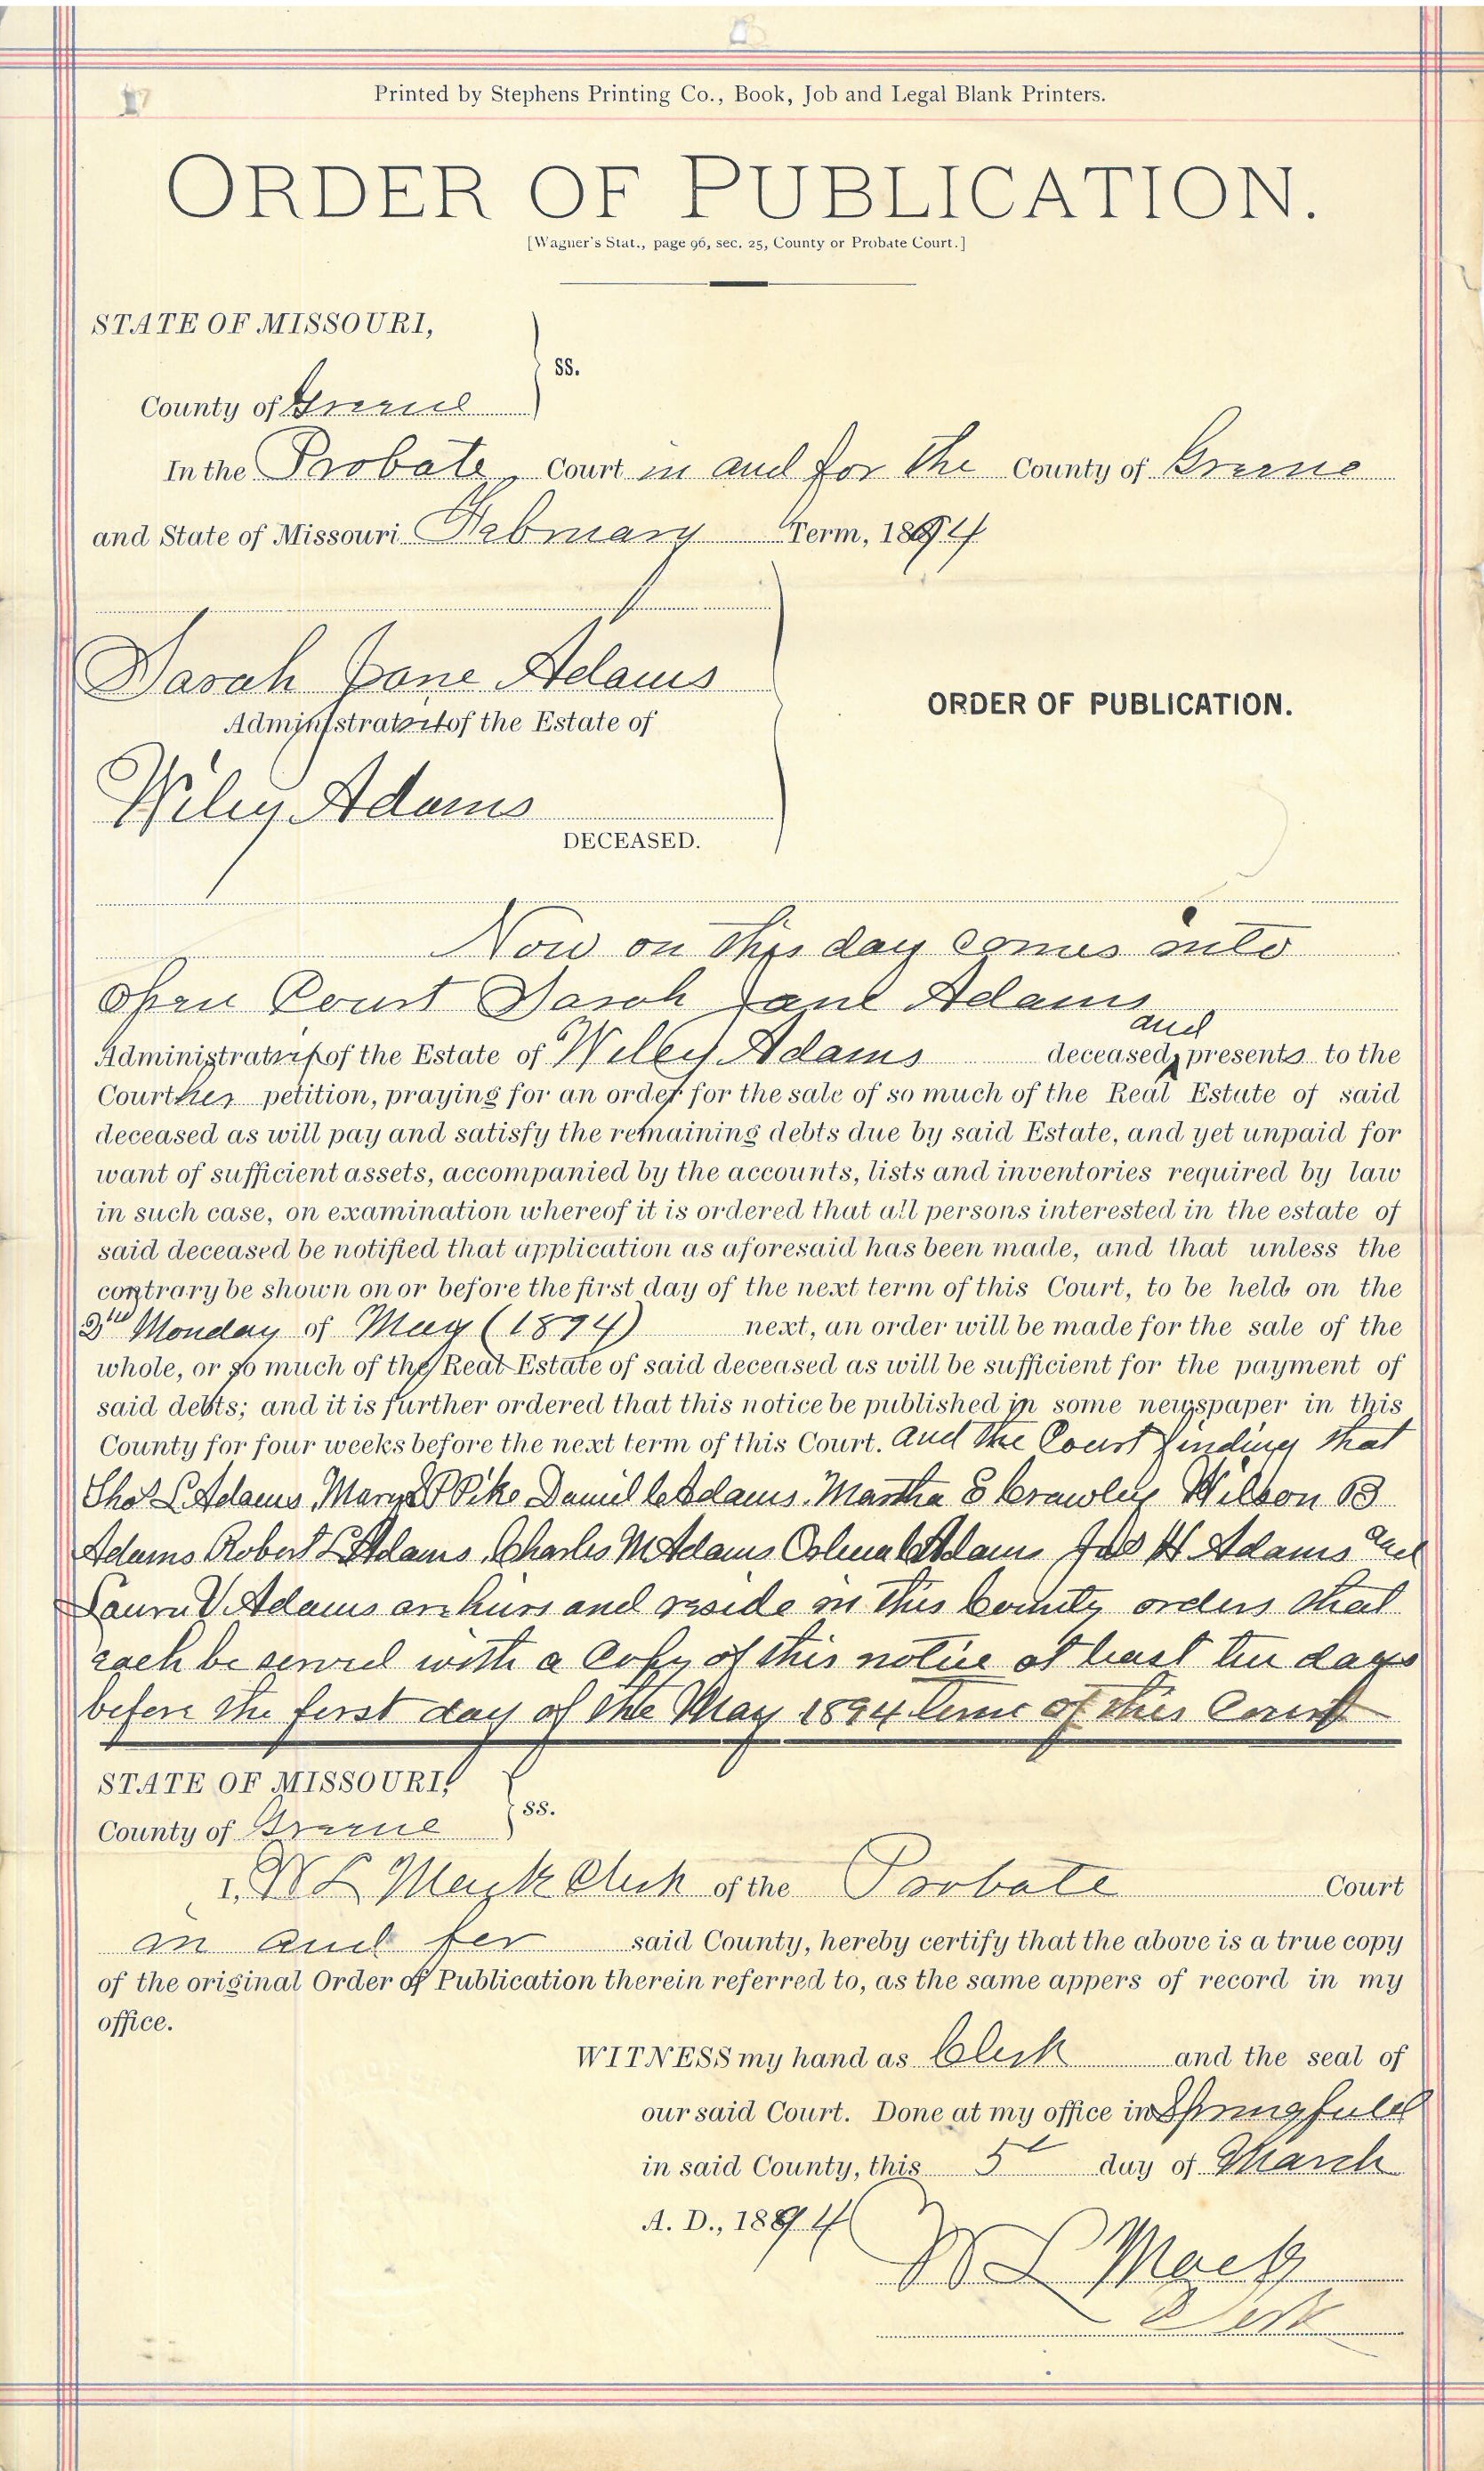 Printed by Stephens Printing Co., Book, Job and Legal Blank Printers.
ORDER OF PUBLICATION.
[Wagner's Stat., page 96, sec. 25, County or Probate Court.]
STATE OF MISSOURI,
ss.
County of Greene
In the Probate Court in and for the County of Greene
and State of Missouri February Term, 1894
Sarah Jane Adams
ORDER OF PUBLICATION.
Administratrix of the Estate of
Wiley Adams
DECEASED.
Now on this day comes into
open Court Sarah Jane Adams
and
Administratrix of the Estate of Wiley Adams deceased, presents to the
Court her petition, praying for an order for the sale of so much of the Real Estate of said
deceased as will pay and satisfy the remaining debts due by said Estate, and yet unpaid for
want of sufficient assets, accompanied by the accounts, lists and inventories required by law
in such case, on examination whereof it is ordered that all persons interested in the estate of
said deceased be notified that application as aforesaid has been made, and that unless the
contrary be shown on or before the first day of the next term of this Court, to be held on the
Monday of May (1894) next, an order will be made for the sale of the
whole, or so much of the Real Estate of said deceased as will be sufficient for the payment of
said debts; and it is further ordered that this notice be published in some newspaper in this
County for four weeks before the next term of this Court. and the Court finding that
Thos L Adams Mary Pike Daniel C Adams Martha E Crawley Wilson B
Adams Robert L Adams Charles M Adams Adams Jas H Adams and
Laura V Adams are heirs and reside in this County orders that
each be served with a copy of this notice at least ten days
before the first day of the May 1894 term of this Court
STATE OF MISSOURI,
ss.
County of Greene
I, W L Mack Clerk of the Probate Court
in and for said County, hereby certify that the above is a true copy
of the original Order of Publication therein referred to, as the same appers of record in my
office.
WITNESS my hand as Clerk and the seal of
our said Court. Done at my office in Springfield
in said County, this 5t day of March
A. D., 1894
W L Mack
Clerk